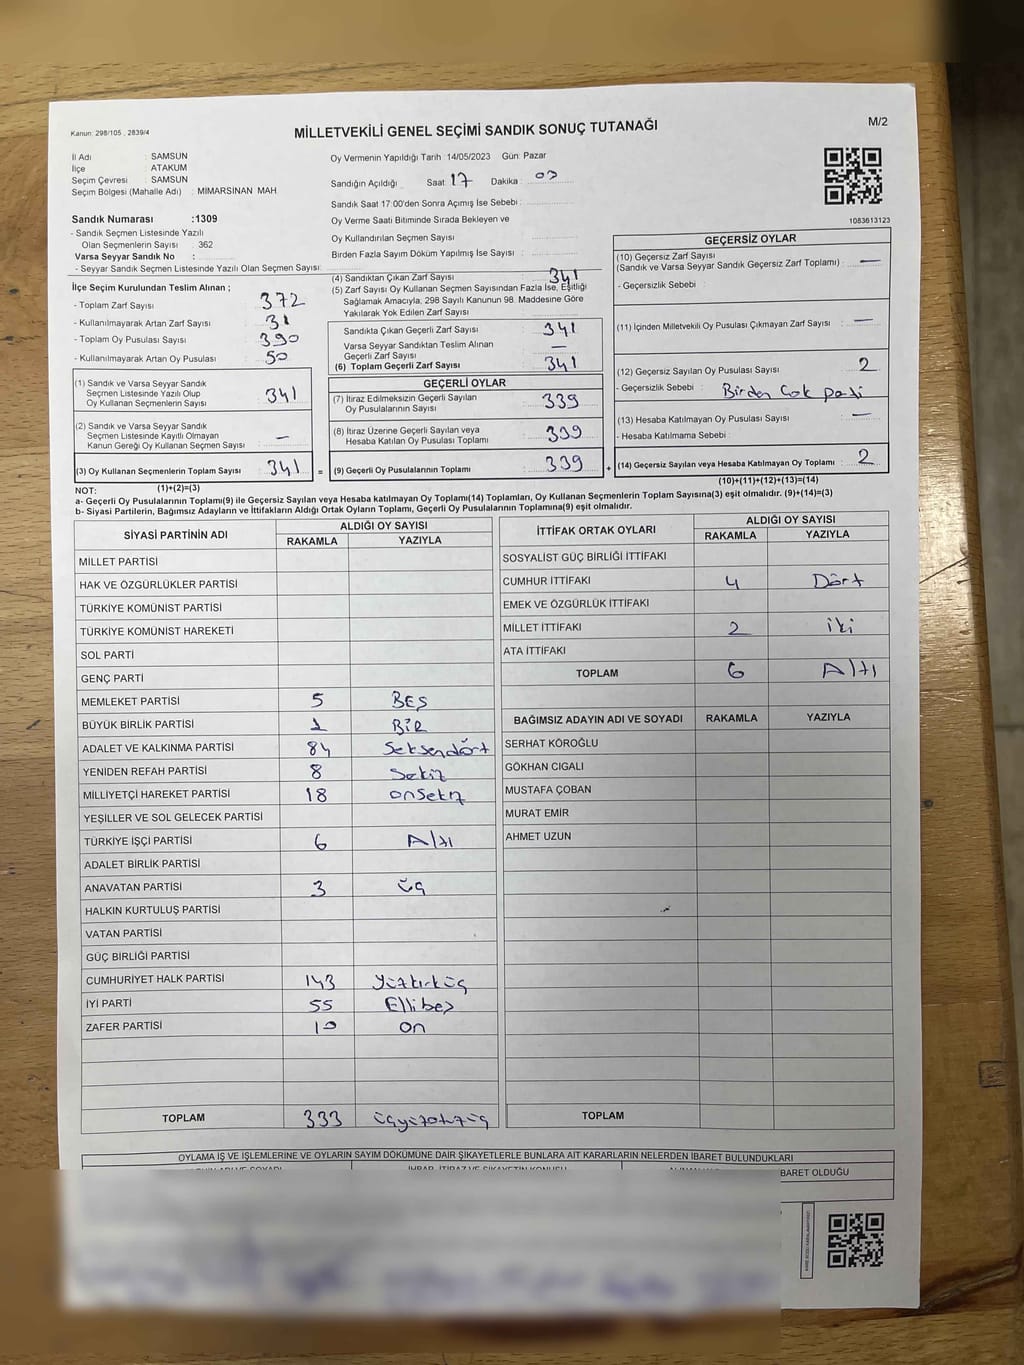 Kanun: 298/105 , 2839/4
MİLLETVEKİLİ GENEL SEÇİMİ SANDIK SONUÇ TUTANAĞI
M/2
İl Adı : SAMSUN
İlçe : ATAKUM
Seçim Çevresi : SAMSUN
Seçim Bölgesi (Mahalle Adı) : MİMARSİNAN MAH
Sandık Numarası :1309
- Sandık Seçmen Listesinde Yazılı
Olan Seçmenlerin Sayısı : 362
Varsa Seyyar Sandık No :
- Seyyar Sandık Seçmen Listesinde Yazılı Olan Seçmen Sayısı:
Oy Vermenin Yapıldığı Tarih :14/05/2023 Gün: Pazar
Sandığın Açıldığı Saat 17 Dakika : 00
Sandık Saat 17:00'den Sonra Açımış İse Sebebi :
Oy Verme Saati Bitiminde Sırada Bekleyen ve
Oy Kullandırılan Seçmen Sayısı
Birden Fazla Sayım Döküm Yapılmış İse Sayısı :
1083613123
İlçe Seçim Kurulundan Teslim Alınan ;
- Toplam Zarf Sayısı : 372
- Kullanılmayarak Artan Zarf Sayısı : 31
- Toplam Oy Pusulası Sayısı : 390
- Kullanılmayarak Artan Oy Pusulası : 50
(1) Sandık ve Varsa Seyyar Sandık
Seçmen Listesinde Yazılı Olup
Oy Kullanan Seçmenlerin Sayısı : 341
(2) Sandık ve Varsa Seyyar Sandık
Seçmen Listesinde Kayıtlı Olmayan
Kanun Gereği Oy Kullanan Seçmen Sayısı : –
(3) Oy Kullanan Seçmenlerin Toplam Sayısı : 341 =
(1)+(2)=(3)
(4) Sandıktan Çıkan Zarf Sayısı : 341
(5) Zarf Sayısı Oy Kullanan Seçmen Sayısından Fazla İse, Eşitliği
Sağlamak Amacıyla, 298 Sayılı Kanunun 98. Maddesine Göre
Yakılarak Yok Edilen Zarf Sayısı :
Sandıkta Çıkan Geçerli Zarf Sayısı : 341
Varsa Seyyar Sandıktan Teslim Alınan
Geçerli Zarf Sayısı : –
(6) Toplam Geçerli Zarf Sayısı : 341
GEÇERLİ OYLAR
(7) İtiraz Edilmeksizin Geçerli Sayılan
Oy Pusulalarının Sayısı : 339
(8) İtiraz Üzerine Geçerli Sayılan veya
Hesaba Katılan Oy Pusulası Toplamı : 339
(9) Geçerli Oy Pusulalarının Toplamı : 339 +
GEÇERSİZ OYLAR
(10) Geçersiz Zarf Sayısı
(Sandık ve Varsa Seyyar Sandık Geçersiz Zarf Toplamı) : –
- Geçersizlik Sebebi :
(11) İçinden Milletvekili Oy Pusulası Çıkmayan Zarf Sayısı : –
(12) Geçersiz Sayılan Oy Pusulası Sayısı : 2
- Geçersizlik Sebebi : Birden Çok parti
(13) Hesaba Katılmayan Oy Pusulası Sayısı : –
- Hesaba Katılmama Sebebi :
(14) Geçersiz Sayılan veya Hesaba Katılmayan Oy Toplamı : 2
(10)+(11)+(12)+(13)=(14)
NOT:
a- Geçerli Oy Pusulalarının Toplamı(9) ile Geçersiz Sayılan veya Hesaba katılmayan Oy Toplamı(14) Toplamları, Oy Kullanan Seçmenlerin Toplam Sayısına(3) eşit olmalıdır. (9)+(14)=(3)
b- Siyasi Partilerin, Bağımsız Adayların ve İttifakların Aldığı Ortak Oyların Toplamı, Geçerli Oy Pusulalarının Toplamına(9) eşit olmalıdır.
SİYASİ PARTİNİN ADI ALDIĞI OY SAYISI
RAKAMLA YAZIYLA
MİLLET PARTİSİ
HAK VE ÖZGÜRLÜKLER PARTİSİ
TÜRKİYE KOMÜNİST PARTİSİ
TÜRKİYE KOMÜNİST HAREKETİ
SOL PARTİ
GENÇ PARTİ
MEMLEKET PARTİSİ 5 BEŞ
BÜYÜK BİRLİK PARTİSİ 1 BİR
ADALET VE KALKINMA PARTİSİ 84 Seksendört
YENİDEN REFAH PARTİSİ 8 Sekiz
MİLLİYETÇİ HAREKET PARTİSİ 18 onSekiz
YEŞİLLER VE SOL GELECEK PARTİSİ
TÜRKİYE İŞÇİ PARTİSİ 6 Altı
ADALET BİRLİK PARTİSİ
ANAVATAN PARTİSİ 3 üç
HALKIN KURTULUŞ PARTİSİ
VATAN PARTİSİ
GÜÇ BİRLİĞİ PARTİSİ
CUMHURİYET HALK PARTİSİ 143 Yüzkırküç
İYİ PARTİ 55 Ellibeş
ZAFER PARTİSİ 10 on
TOPLAM 333 üçyüzotuzüç
İTTİFAK ORTAK OYLARI ALDIĞI OY SAYISI
RAKAMLA YAZIYLA
SOSYALİST GÜÇ BİRLİĞİ İTTİFAKI
CUMHUR İTTİFAKI 4 Dört
EMEK VE ÖZGÜRLÜK İTTİFAKI
MİLLET İTTİFAKI 2 iki
ATA İTTİFAKI
TOPLAM 6 Altı
BAĞIMSIZ ADAYIN ADI VE SOYADI RAKAMLA YAZIYLA
SERHAT KÖROĞLU
GÖKHAN CIGALI
MUSTAFA ÇOBAN
MURAT EMİR
AHMET UZUN
TOPLAM
OYLAMA İŞ VE İŞLEMLERİNE VE OYLARIN SAYIM DÖKÜMÜNE DAİR ŞİKAYETLERLE BUNLARA AİT KARARLARIN NELERDEN İBARET BULUNDUKLARI
BARET OLDUĞU